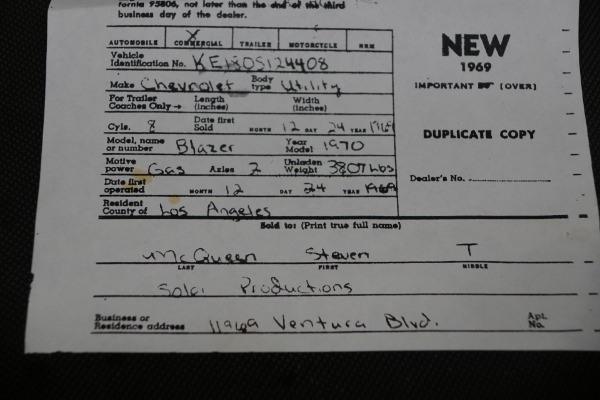 fornia 95806, not later than the end of the third
business day of the dealer.
AUTOMOBILE COMMERCIAL TRAILER MOTORCYCLE NRM
X
Vehicle
Identification No. KE180S124408
Make Chevrolet Body type Utility
For Trailer Coaches Only → Length (inches) Width (inches)
Cyls. 8 Date first Sold MONTH 12 DAY 24 YEAR 1969
Model, name or number Blazer Year Model 1970
Motive power Gas Axles 2 Unladen Weight 3807 Lbs
Date first operated MONTH 12 DAY 24 YEAR 1969
Resident County of Los Angeles
NEW
1969
IMPORTANT (OVER)
DUPLICATE COPY
Dealer's No.
Sold to: (Print true full name)
McQueen Steven T
LAST FIRST MIDDLE
Solar Productions
Business or Residence address 11969 Ventura Blvd. Apt. No.